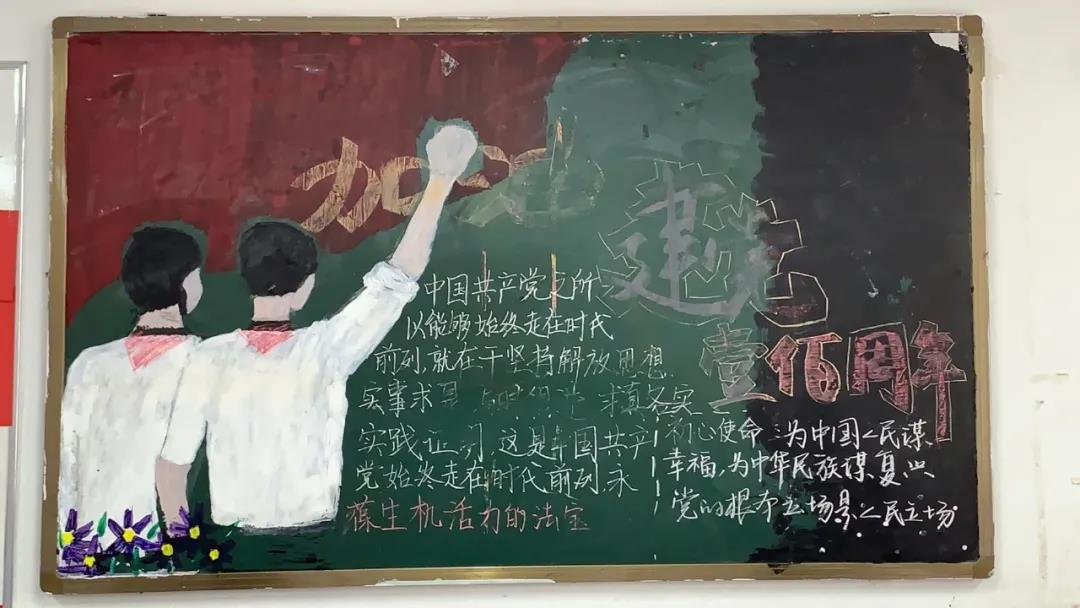 加油
建党
壹佰周年
中国共产党之所
以能够始终走在时代
前列,就在于坚持解放思想.
实事求是 与时俱进 求真务实
实践证明,这是中国共产
党始终走在时代前列,永
葆生机活力的法宝
初心使命:为中国人民谋
幸福,为中华民族谋复兴
党的根本立场是人民立场